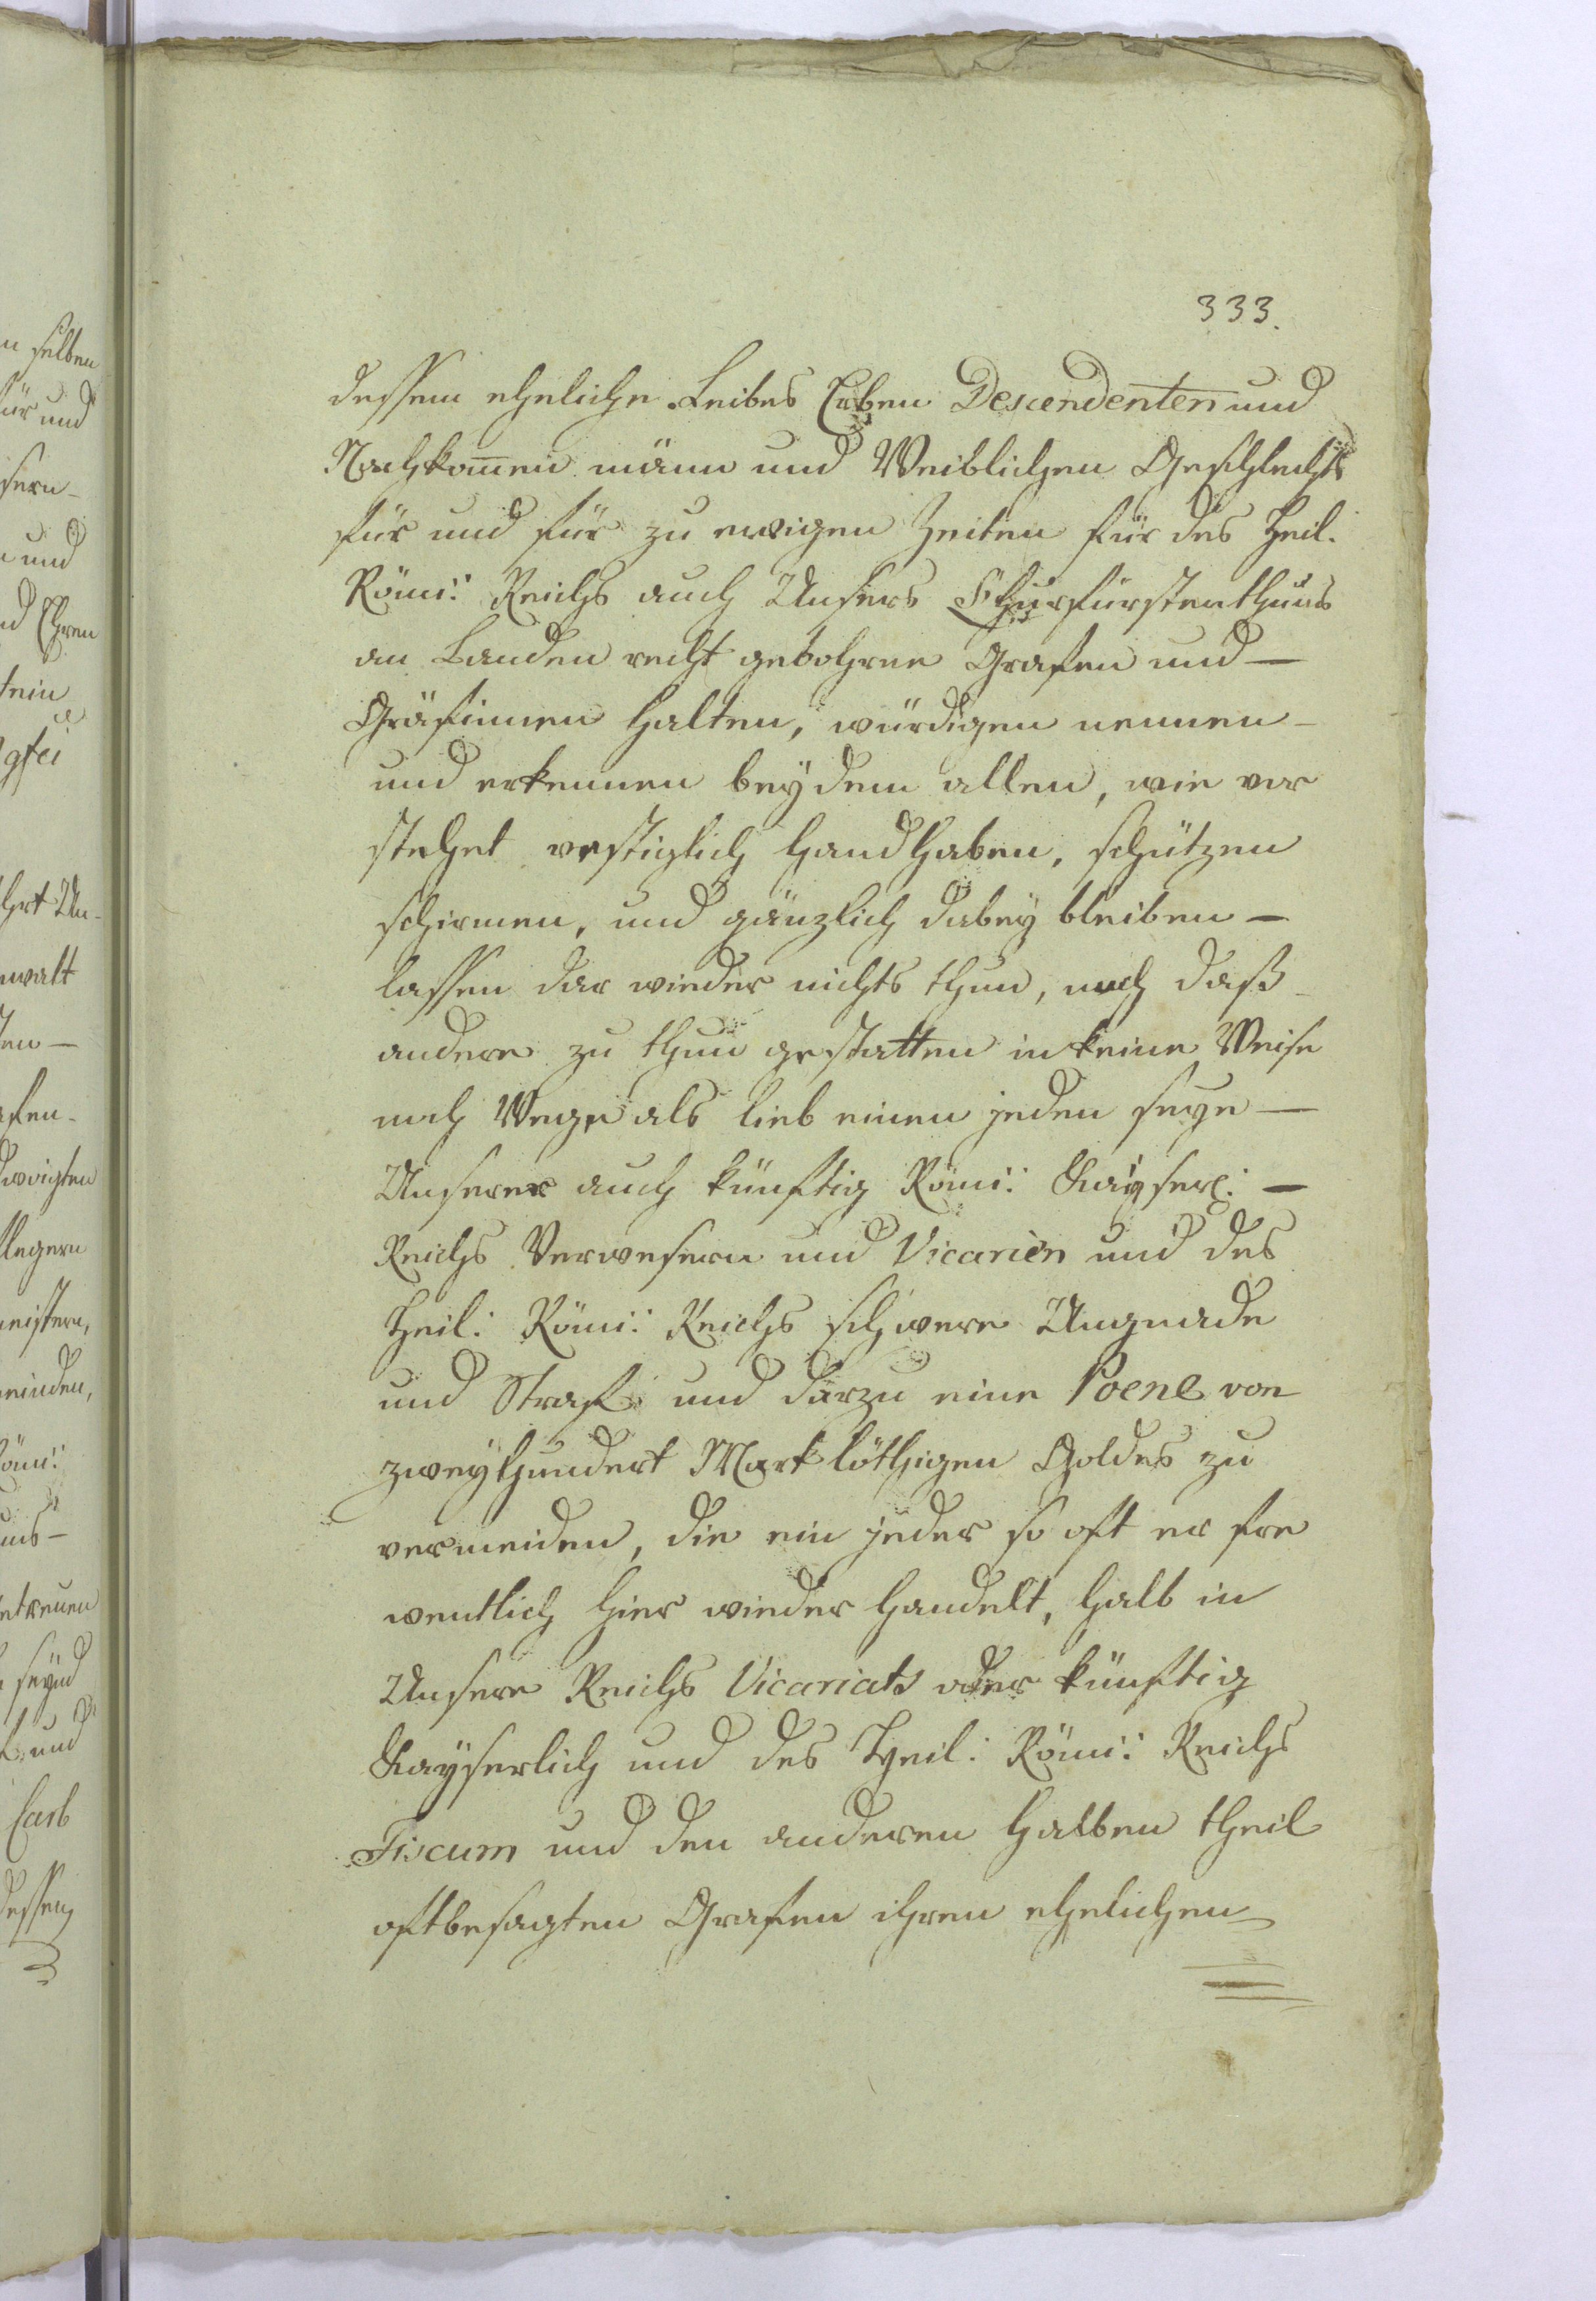 333.
dessen eheliche Leibes Erben Descendenten und
Nachkom̅en män̅ und Weiblichen Geschlechts
für und für zu ewigen Zeiten für des Heil.
Römi: Reichs auch Unsers Churfürstenthums
an Landen recht gebohrne Grafen und —
Gräfinnen halten, würdigen nennen -
und erkennen bey dem allen, wie vor
stehet vestiglich handhaben, schützen
schirmen, und gänzlich dabey bleiben —
lassen dar wieder nichts thun, noch daß -
andere zu thun gestatten in keine Weise
noch Wege als lieb einen jeden seye —
Unserer auch künftig Römi: Kayserl: —
Reichs Verwesern und Vicarien und des
Heil: Römi: Reichs schwere Ungnade
und Straf und darzu eine Poene von
zweyhundert Mark löthigen Goldes zu
vermeiden, die ein jeder so oft er fre
wentlich hier wieder handelt, halb in
Unsere Reichs Vicariats oder künftig
Kayserlich und des Heil: Römi: Reichs
Fiscum und den anderen halben theil
oftbesagten Grafen ihren ehelichen
selben
ür und
sern -
und
nd Ehren
tein
hrt Un-
nwalt
ten —
afen -
legern
meistern,
meinden,
Römi:
uns —
getreuen
seynd
und
Carl
dessen